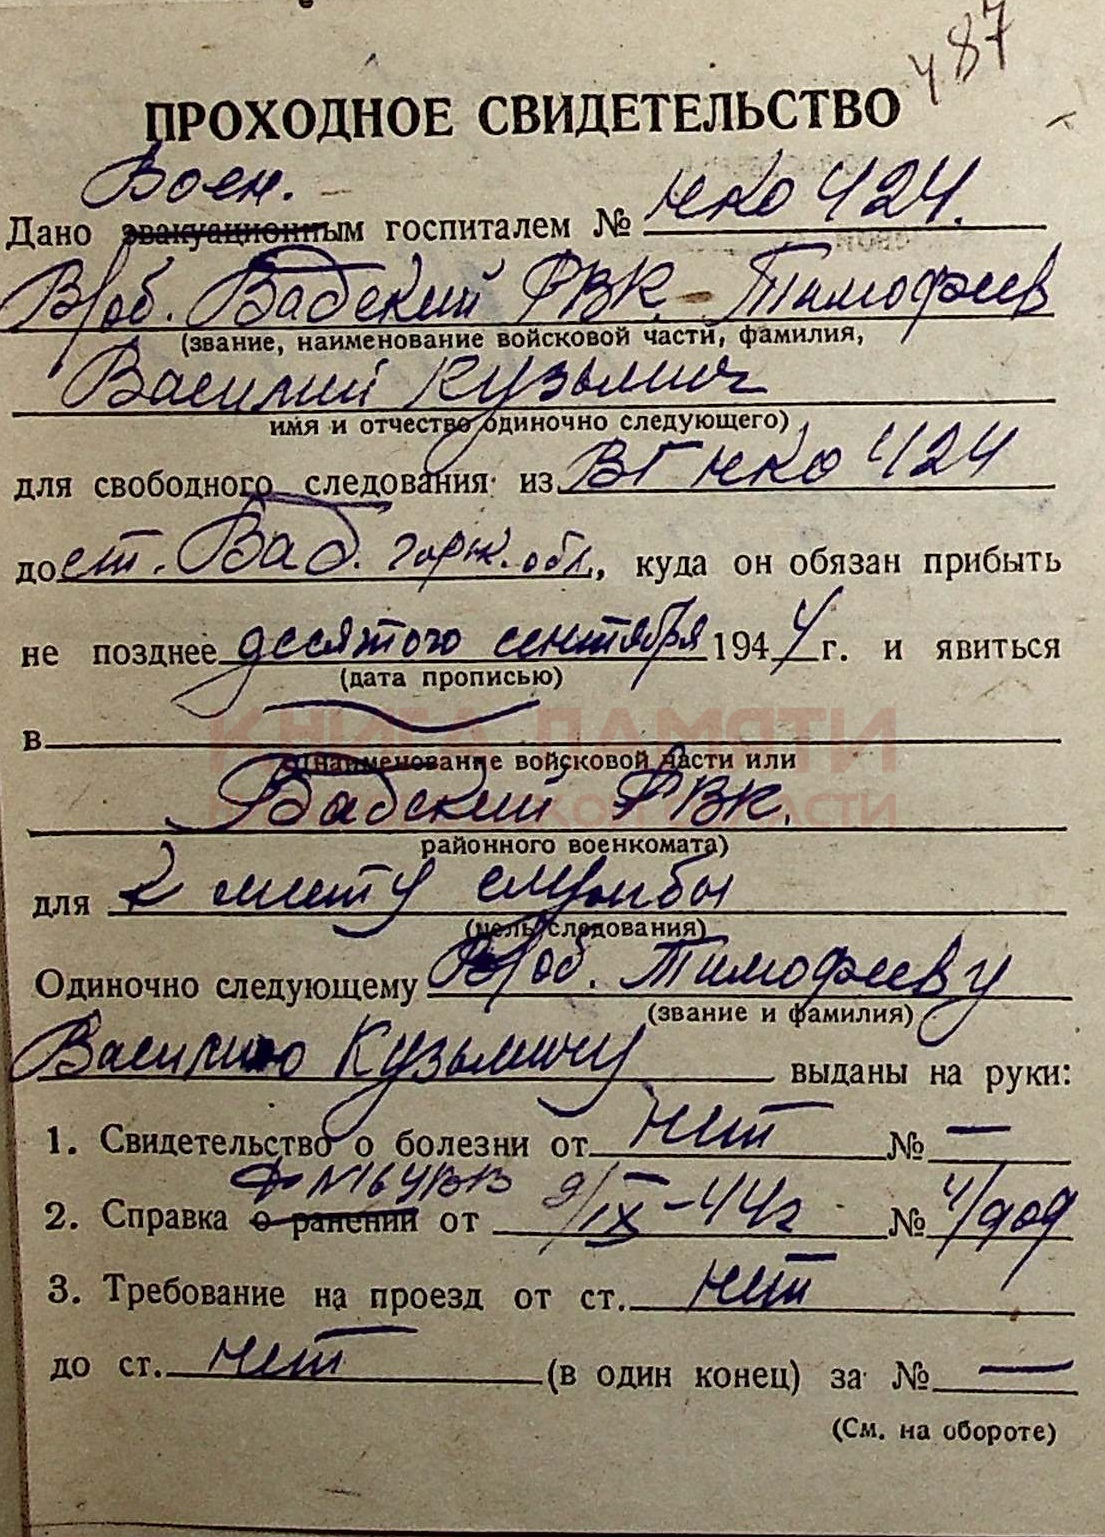 487
ПРОХОДНОЕ СВИДЕТЕЛЬСТВО
Воен.
Дано эвакуационным госпиталем № НКО 424.
В/об. Вадский РВК. Тимофеев
(звание, наименование войсковой части, фамилия,
Василий Кузьмич
имя и отчество одиночно следующего)
для свободного следования из ВГ НКО 424
до ст. Вад. горьк. обл., куда он обязан прибыть
не позднее десятого сентября 1944 г. и явиться
(дата прописью)
в
КНИГА ПАМЯТИ
(наименование войсковой части или
Вадский РВК.
районного военкомата)
для к месту службы
(цель следования)
Одиночно следующему В/об. Тимофееву
(звание и фамилия)
Василию Кузьмичу выданы на руки:
1. Свидетельство о болезни от нет № —
2. Справка о ранении от 9/IX-44г № 4/909
3. Требование на проезд от ст. нет
до ст. нет (в один конец) за № —
(См. на обороте)